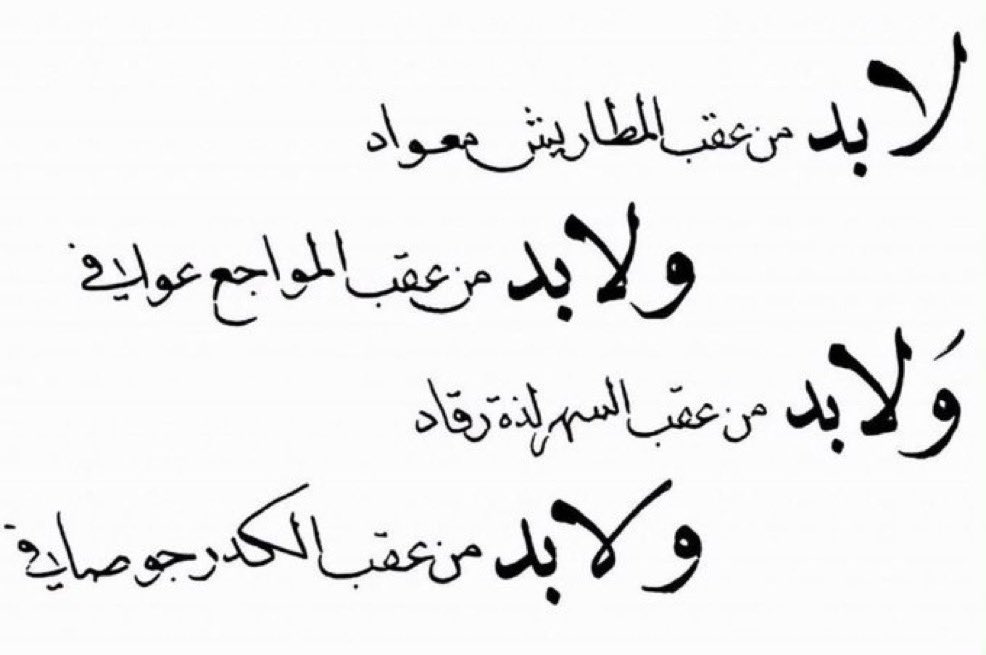 لا بد من عقب المطاريش معواد
ولا بد من عقب المواجع عوافي
وَلا بد من عقب السهر لذة رقاد
ولا بد من عقب الكدر جو صافي